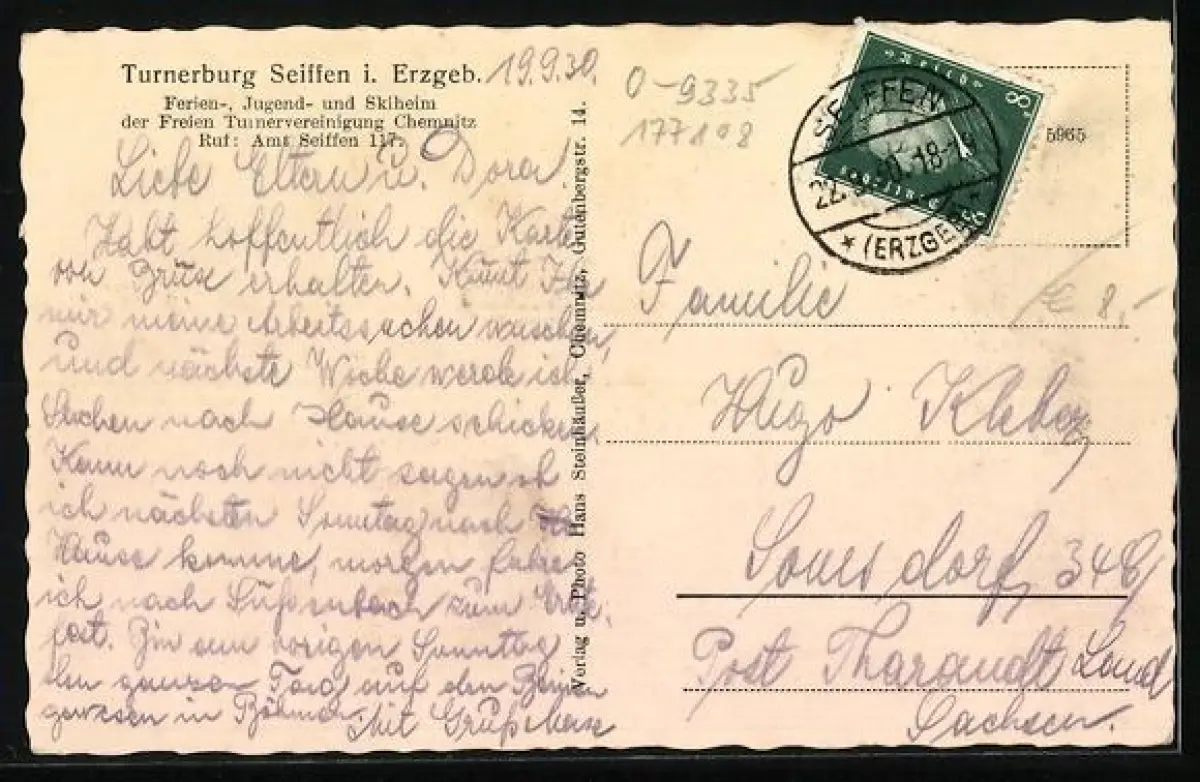 Turnerburg Seiffen i. Erzgeb. 19.9.30.
Ferien-, Jugend- und Skiheim
der Freien Turnervereinigung Chemnitz
Ruf: Amt Seiffen 117.
Liebe Eltern u. Dora
Habt hoffentlich die Karte
von erhalten. Könnt Ihr
mir meine Arbeitssachen waschen,
und nächste Woche werde ich
Sachen nach Hause schicken
Kann noch nicht sagen ob
ich nächsten Sonntag nach
Hause komme, morgen fahre
ich nach zum
fest. Bin am vorigen Sonntag
den ganzen Tag auf den Bergen
gewesen in Böhmen. Mit Gruß
Verlag u. Photo Hans Steinhäußer, Chemnitz, Gutenbergstr. 14.
0-9335
177108
SEIFFEN
(ERZGEB.)
8
8
5965
€ 8,-
Familie
Hugo
Somsdorf, 34
Post Tharandt Land
Sachsen.